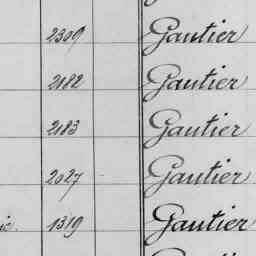 2309 Gautier
2182 Gautier
2183 Gautier
2027 Gautier
1319 Gautier